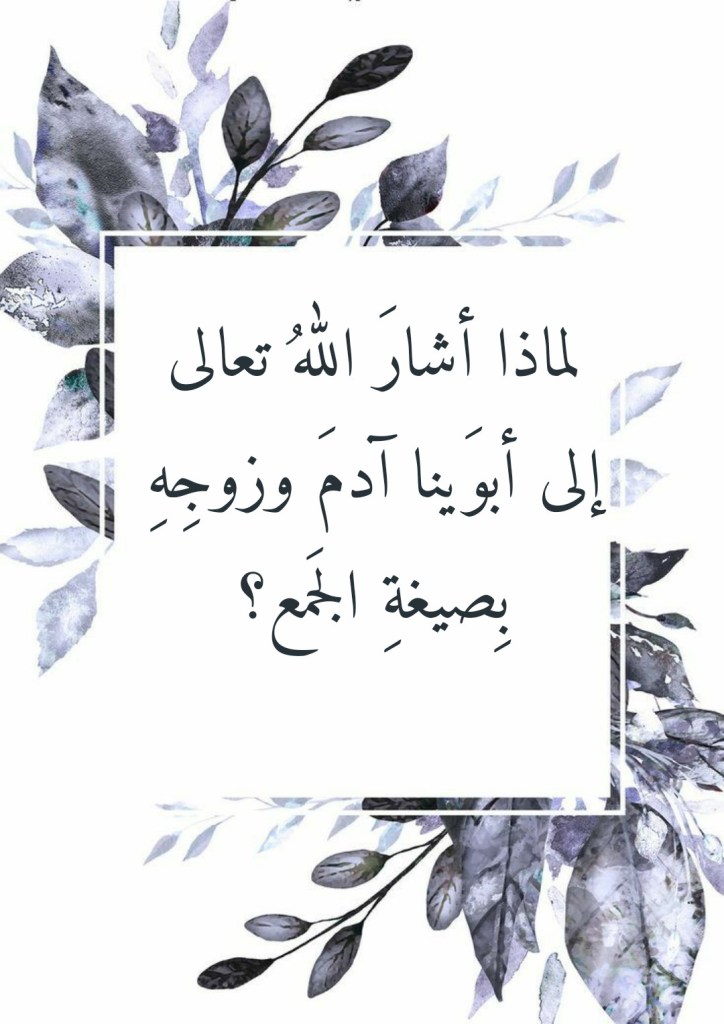 لماذا أشارَ اللهُ تعالى
إلى أبوَينا آدمَ وزوجِهِ
بِصيغةِ الجَمع؟